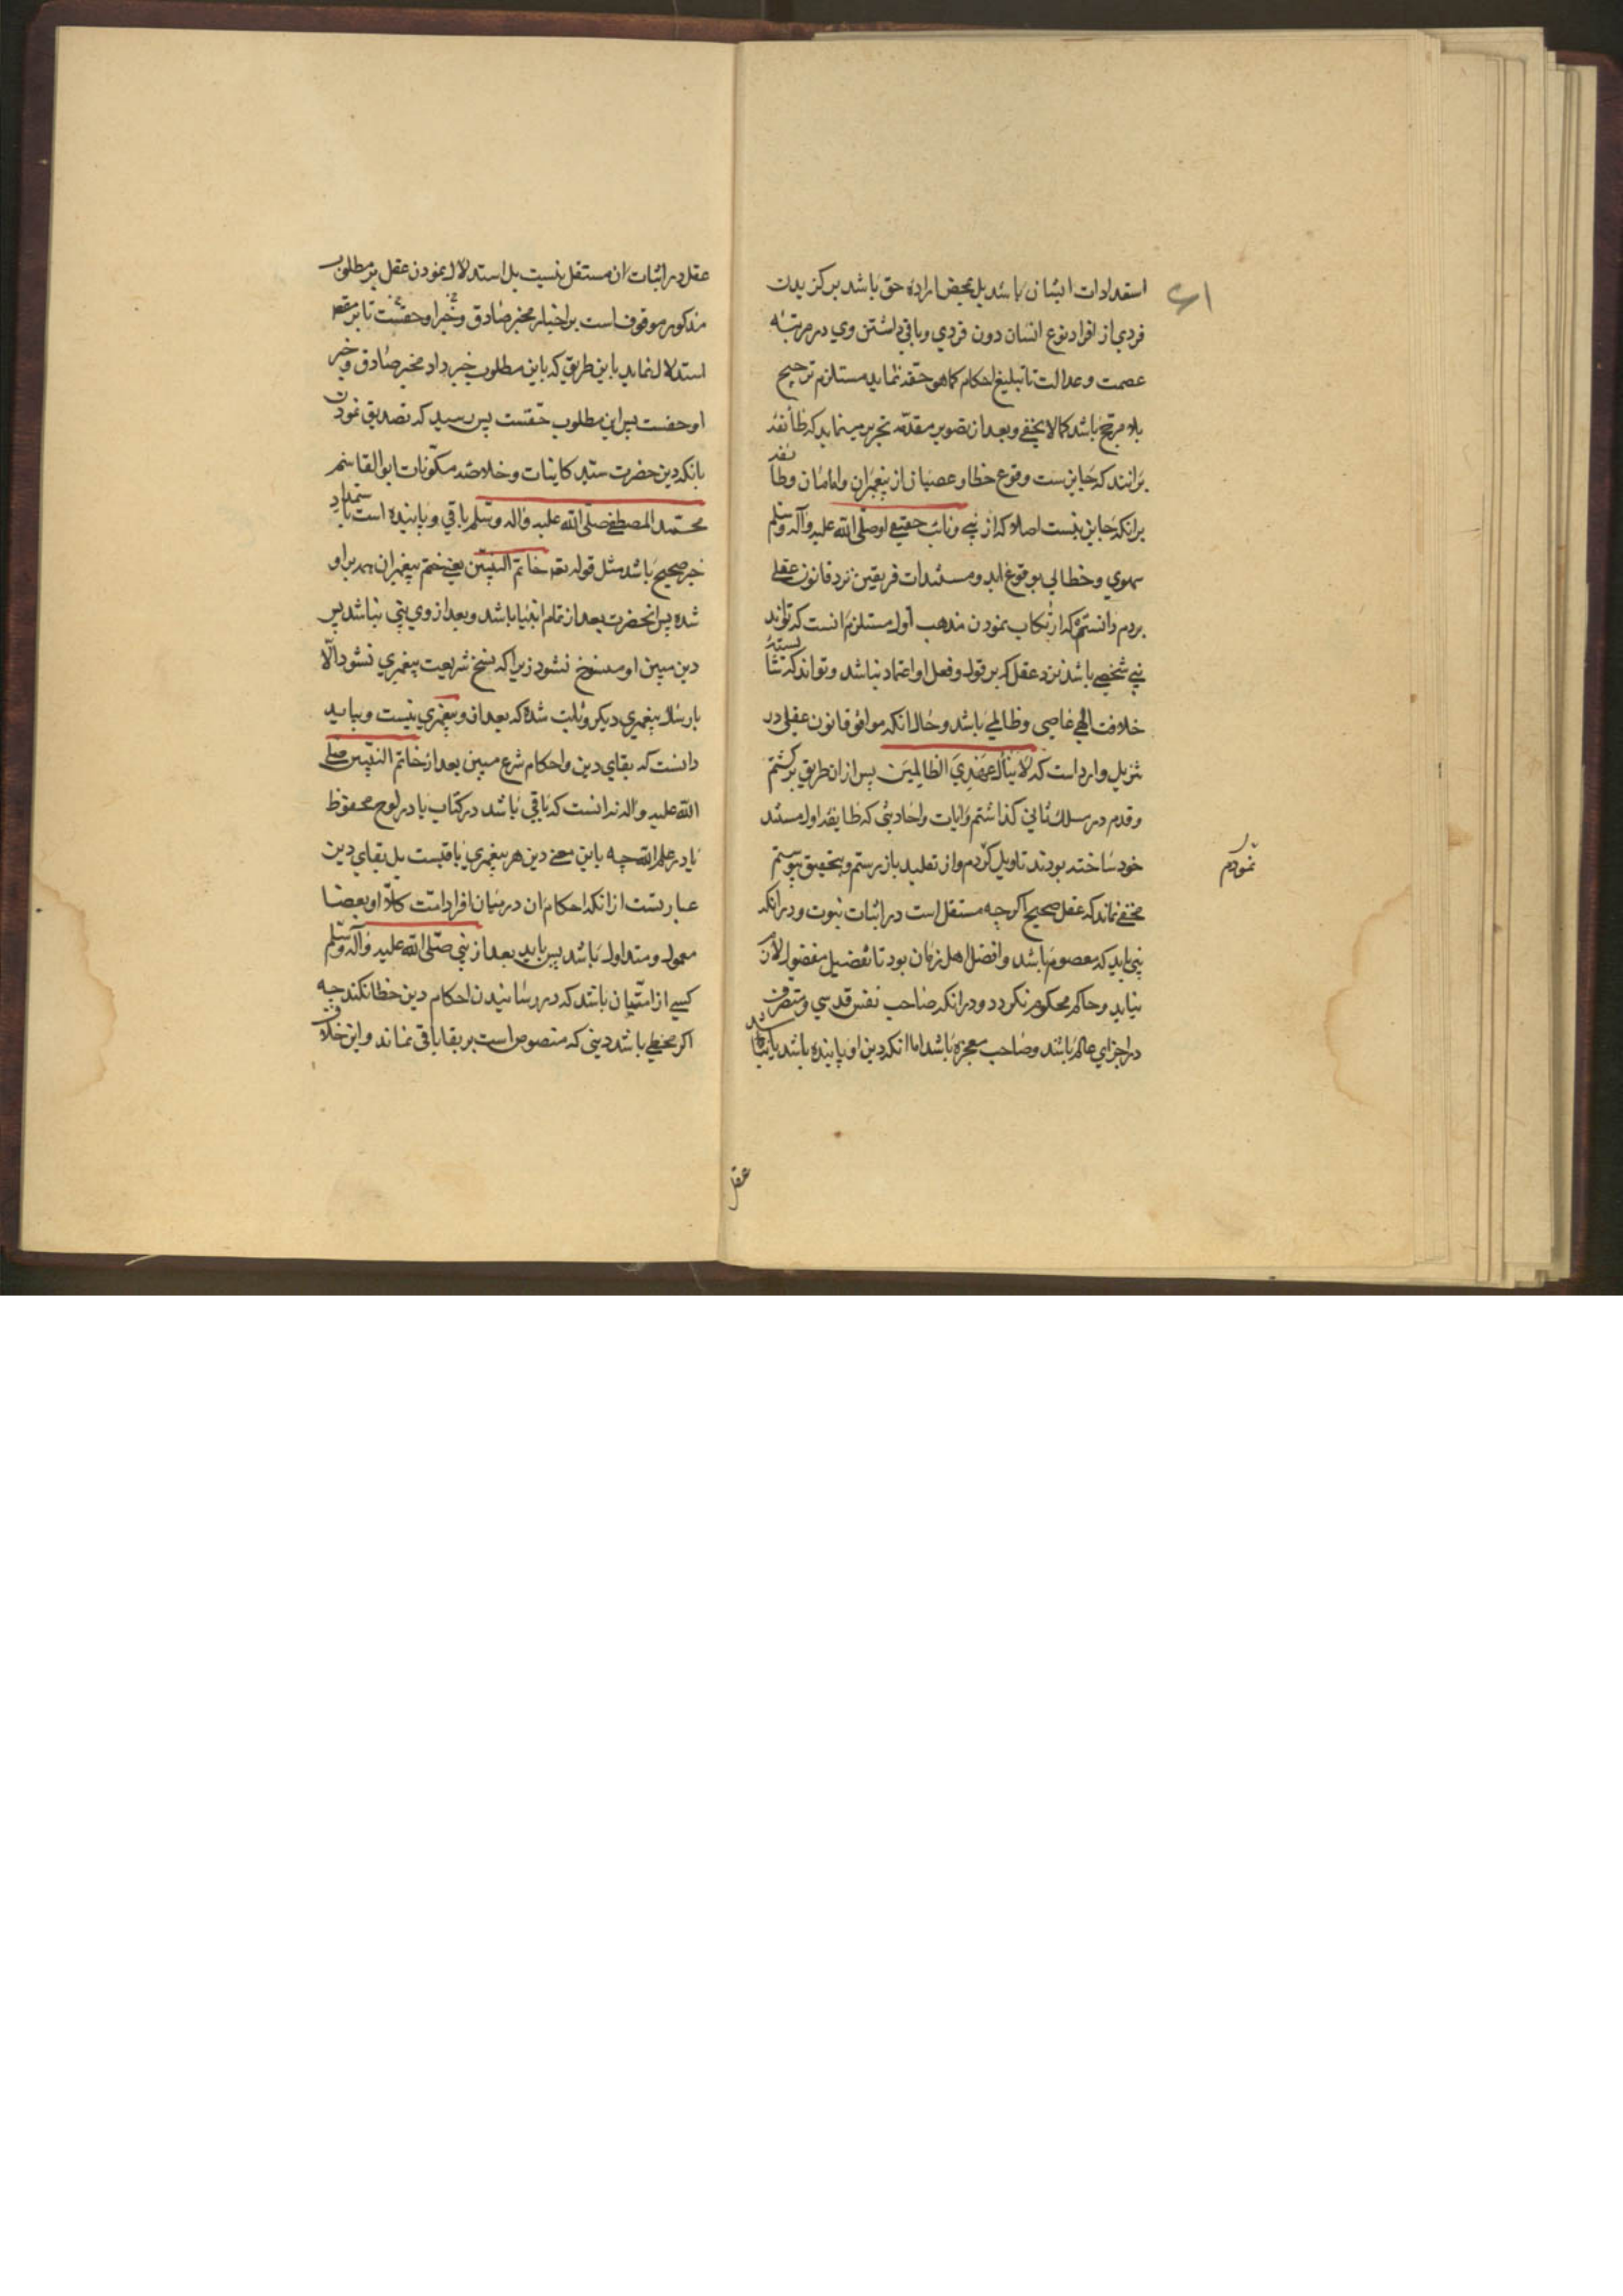 استعدادات ایشان باشد بل بمحض اراده حق باشد بر کزیدن
فردی از افراد نوع انسان دون فردی و باقی داشتن وی در مرتبه
عصمت و عدالت تا تبلیغ احکام کما هو حقه نماید مستلزم ترجیح
بلا مرجح باشد کما لا یخفی و بعد از تصویر مقدمه تحریر مینماید که طائفهٔ
برانند که جایزست وقوع خطا و عصیان از پیغمبران و امامان و طائفهٔ
برانکه جایز نیست اصلا که از نبی و نائب حقیقی او صلی الله علیه وآله وسلم
سهوی و خطایی بوقوع اید و مستندات فریقین نزد قانون عقلی
بردم دانستم که ارتکاب نمودن مذهب اول مستلزم انست که تواند
نبی شخصی باشد نزد عقل که بر قول و فعل او اعتماد نباشد و تواند که شایستهٔ
خلافت الهی عاصی و ظالمی باشد و حال انکه موافق قانون عقلی در
تنزیل وارد است که لَا یَنَالُ عَهْدِیَ الظالِمِینَ پس ازان طریق برکشتم
و قدم در مسلک ثانی کذاشتم و ایات و احادیثی که طایفه اول مستند
خود ساخته بودند تاویل کردم و از تقلید باز رستم و بتحقیق پیوستم
نمودم
مخفی نماند که عقل صحیح اکر چه مستقل است در اثبات نبوت و در انکه
نبی باید که معصوم باشد و افضل اهل زمان بود تا تفضیل مفضول لازم
نیاید و حاکم محکوم نکردد و در انکه صاحب نفس قدسی و متصرف
در اجزای عالم باشد و صاحب معجزه باشد اما انکه دین او پاینده باشد یا نباشد
عقل
عقل در اثبات ان مستقل نیست بل استدلال نمودن عقل بر مطلوب
مذکور موقوف است بر اخبار مخبر صادق و خبر او حقست تا بر مقصد
استدلال نماید باین طریق که باین مطلوب خبر داد مخبر صادق و خبر
او حقست پس این مطلوب حقست پس رسید که تصدیق نمودن
بانکه دین حضرت سید کاینات و خلاصه مکونات ابو القاسم
محمد المصطفی صلی الله علیه واله وسلم باقی و پاینده است باستمداد
خبر صحیح باشد مثل قوله تعـ خاتم النبیین یعنی ختم پیغمبران همه بر او
شده پس انحضرت بعد از تمام انبیا باشد و بعد از وی نبی نباشد پس
دین مبین او منسوخ نشود زیرا که نسخ شریعت پیغمبری نشود الا
بارسال پیغمبری دیکر و ثابت شده که بعد از و پیغمبری نیست و بباید
دانست که بقای دین و احکام شرع مبین بعد از خاتم النبیین صلی
الله علیه واله نه انست که باقی باشد در کتاب یا در لوح محفوظ
یا در علم الله چه باین معنی دین هر پیغمبری باقیست بل بقای دین
عبارتست از انکه احکام ان در میان افراد امت کلا او بعضا
معمول و متداول باشد پس باید بعد از نبی صلی الله علیه وآله وسلم
کسی از امتیان باشد که در رسانیدن احکام دین خطا نکند چه
اکر مخطی باشد دینی که منصوص است بر بقا باقی نماند و این خلاف